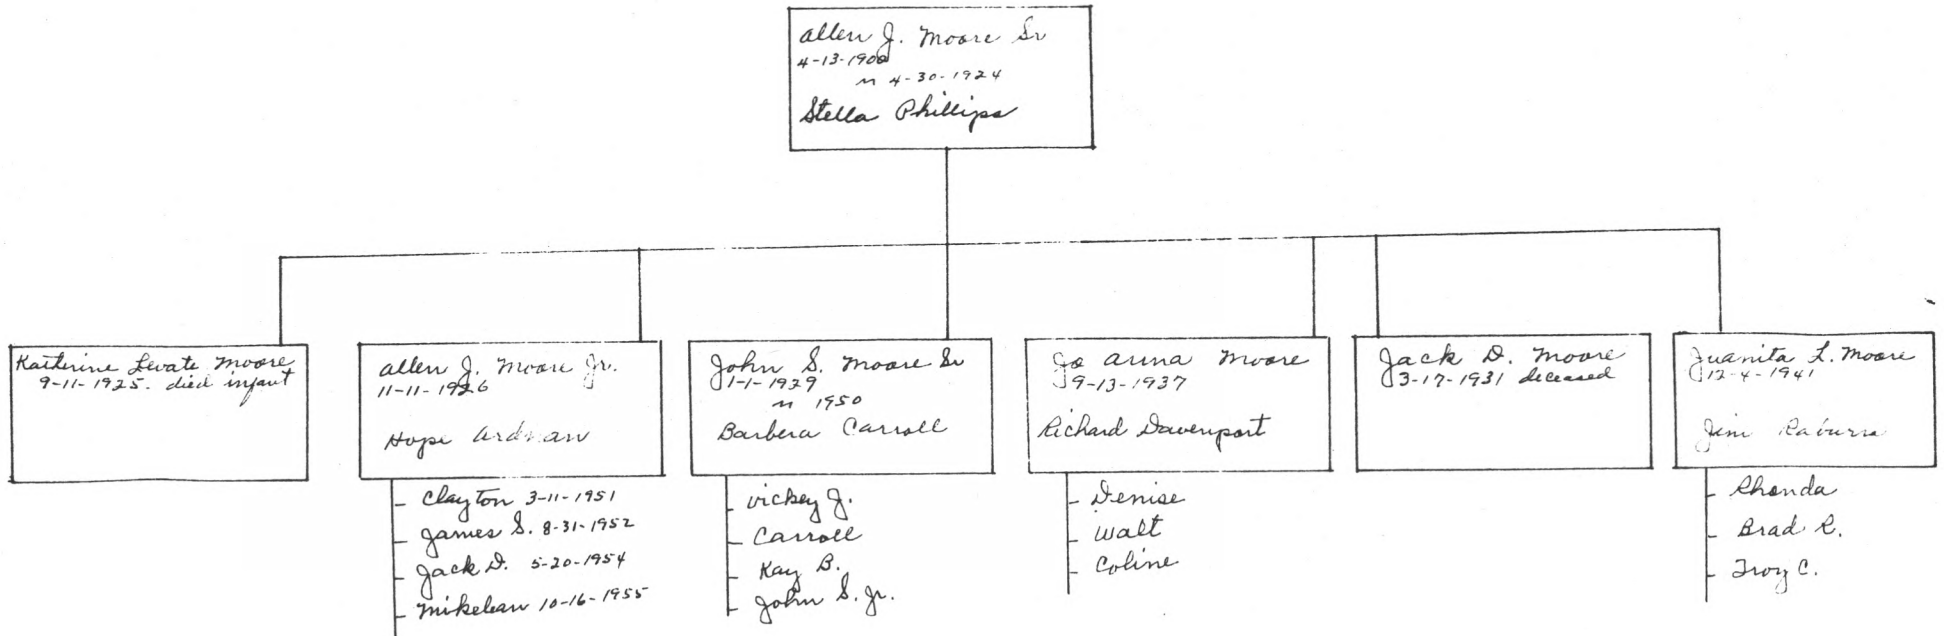 Allen J. Moore Sr
4-13-1900
m 4-30-1924
Stella Phillips
Katherine Levate Moore
9-11-1925. died infant
Allen J. Moore Jr.
11-11-1926
Hope
Clayton 3-11-1951
James S. 8-31-1952
Jack D. 5-20-1954
10-16-1955
John S. Moore Sr
1-1-1929
m 1950
Barbera Carroll
Vickey J.
Carroll
Kay B.
John S. Jr.
Jo Anna Moore
9-13-1937
Richard Davenport
Denise
Walt
Coline
Jack D. Moore
3-17-1931 deceased
Juanita L. Moore
12-4-1941
Jim
Rhonda
Brad R.
Troy C.